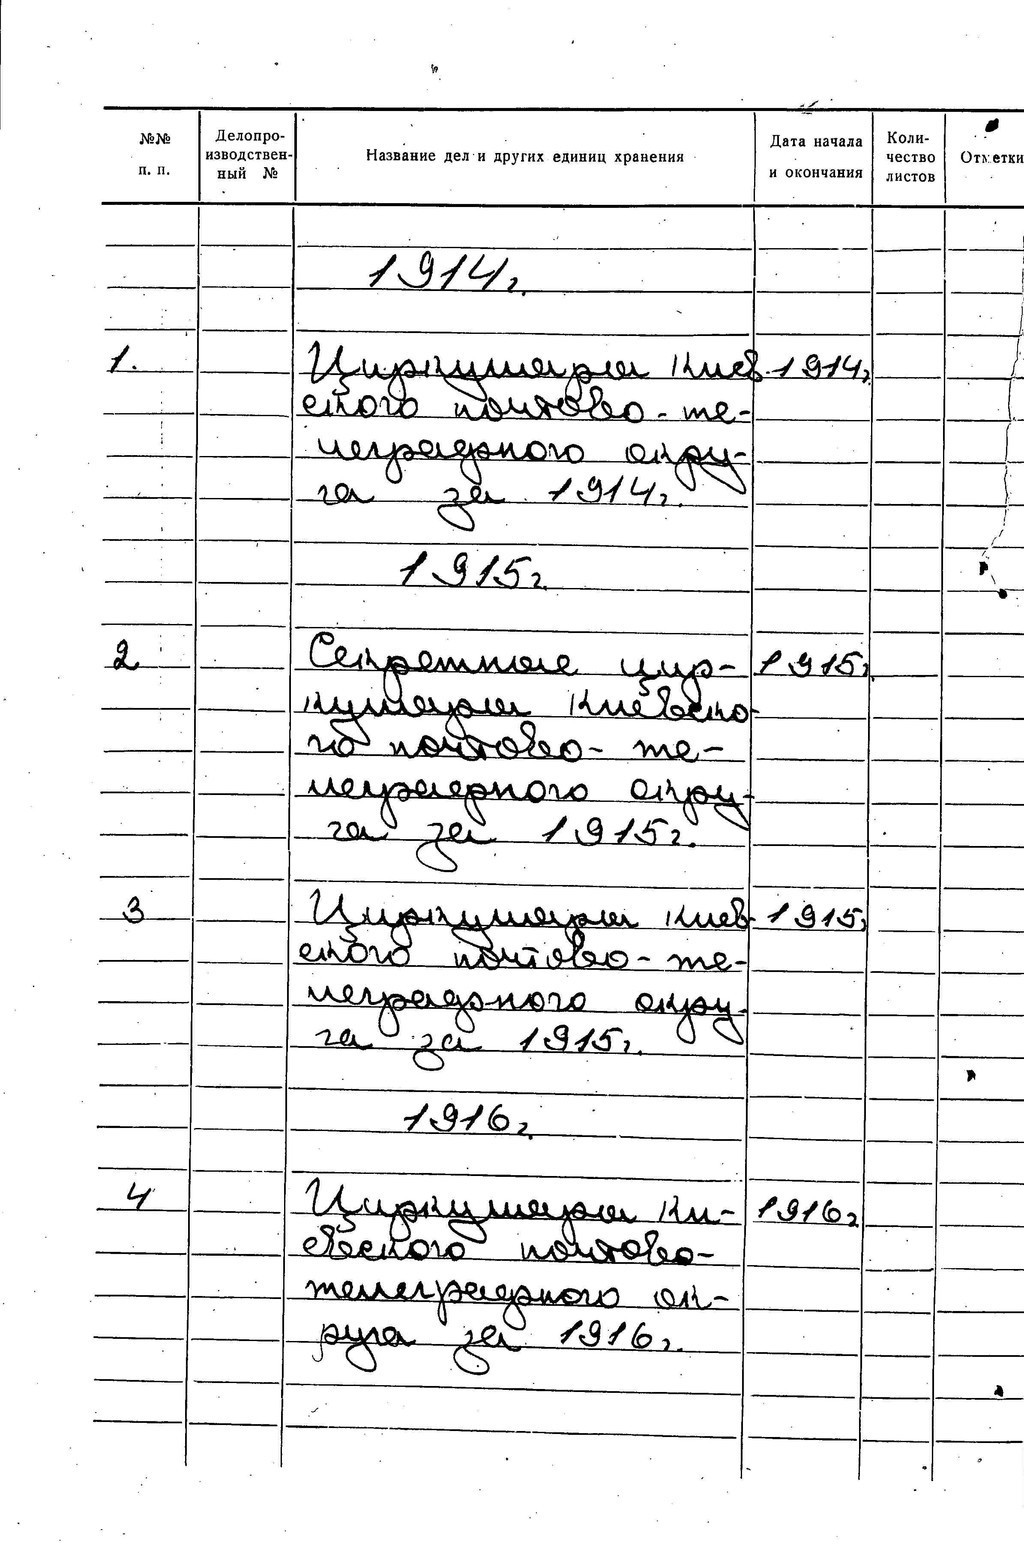 №№ п. п.
Делопро-
изводствен-
ный №
Название дел и других единиц хранения
Дата начала
и окончания
Коли-
чество
листов
Отметки
1914г.
1. Циркуляры Киев- 1914г.
ского почтово-те-
леграфного окру-
га за 1914г.
1915г.
2 Секретные цир- 1915г.
куляры Киевско-
го почтово-те-
леграфного окру-
га за 1915г.
3 Циркуляры Киев- 1915г.
ского почтово-те-
леграфного окру-
га за 1915г.
1916г.
4 Циркуляры Ки- 1916г.
евского почтово-
телеграфного ок-
руга за 1916г.